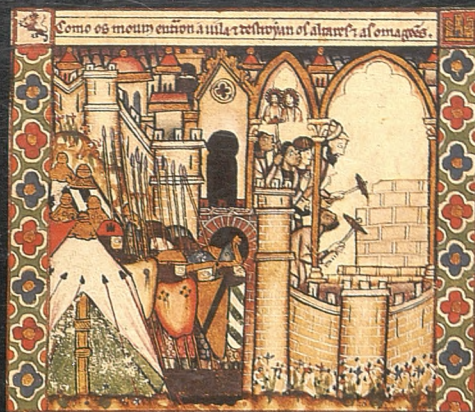 Como os mouros entrõn a uila ⁊ destroyan os altares ⁊ as omagẽes.